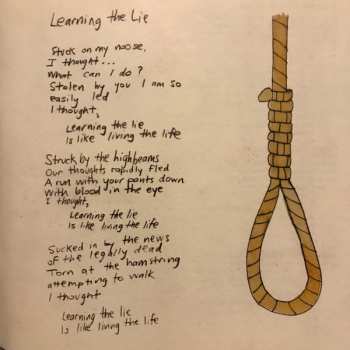 Learning the Lie
Stuck on my noose,
I thought...
What can I do?
Stolen by you I am so
easily led
I thought,
Learning the lie
is like living the life
Struck by the highbeams
Our thoughts rapidly fled
A run with your pants down
With blood in the eye
I thought,
Learning the lie
is like living the life
Sucked in by the news
of the legally dead
Torn at the hamstring
attempting to walk
I thought
Learning the lie
Is like living the life